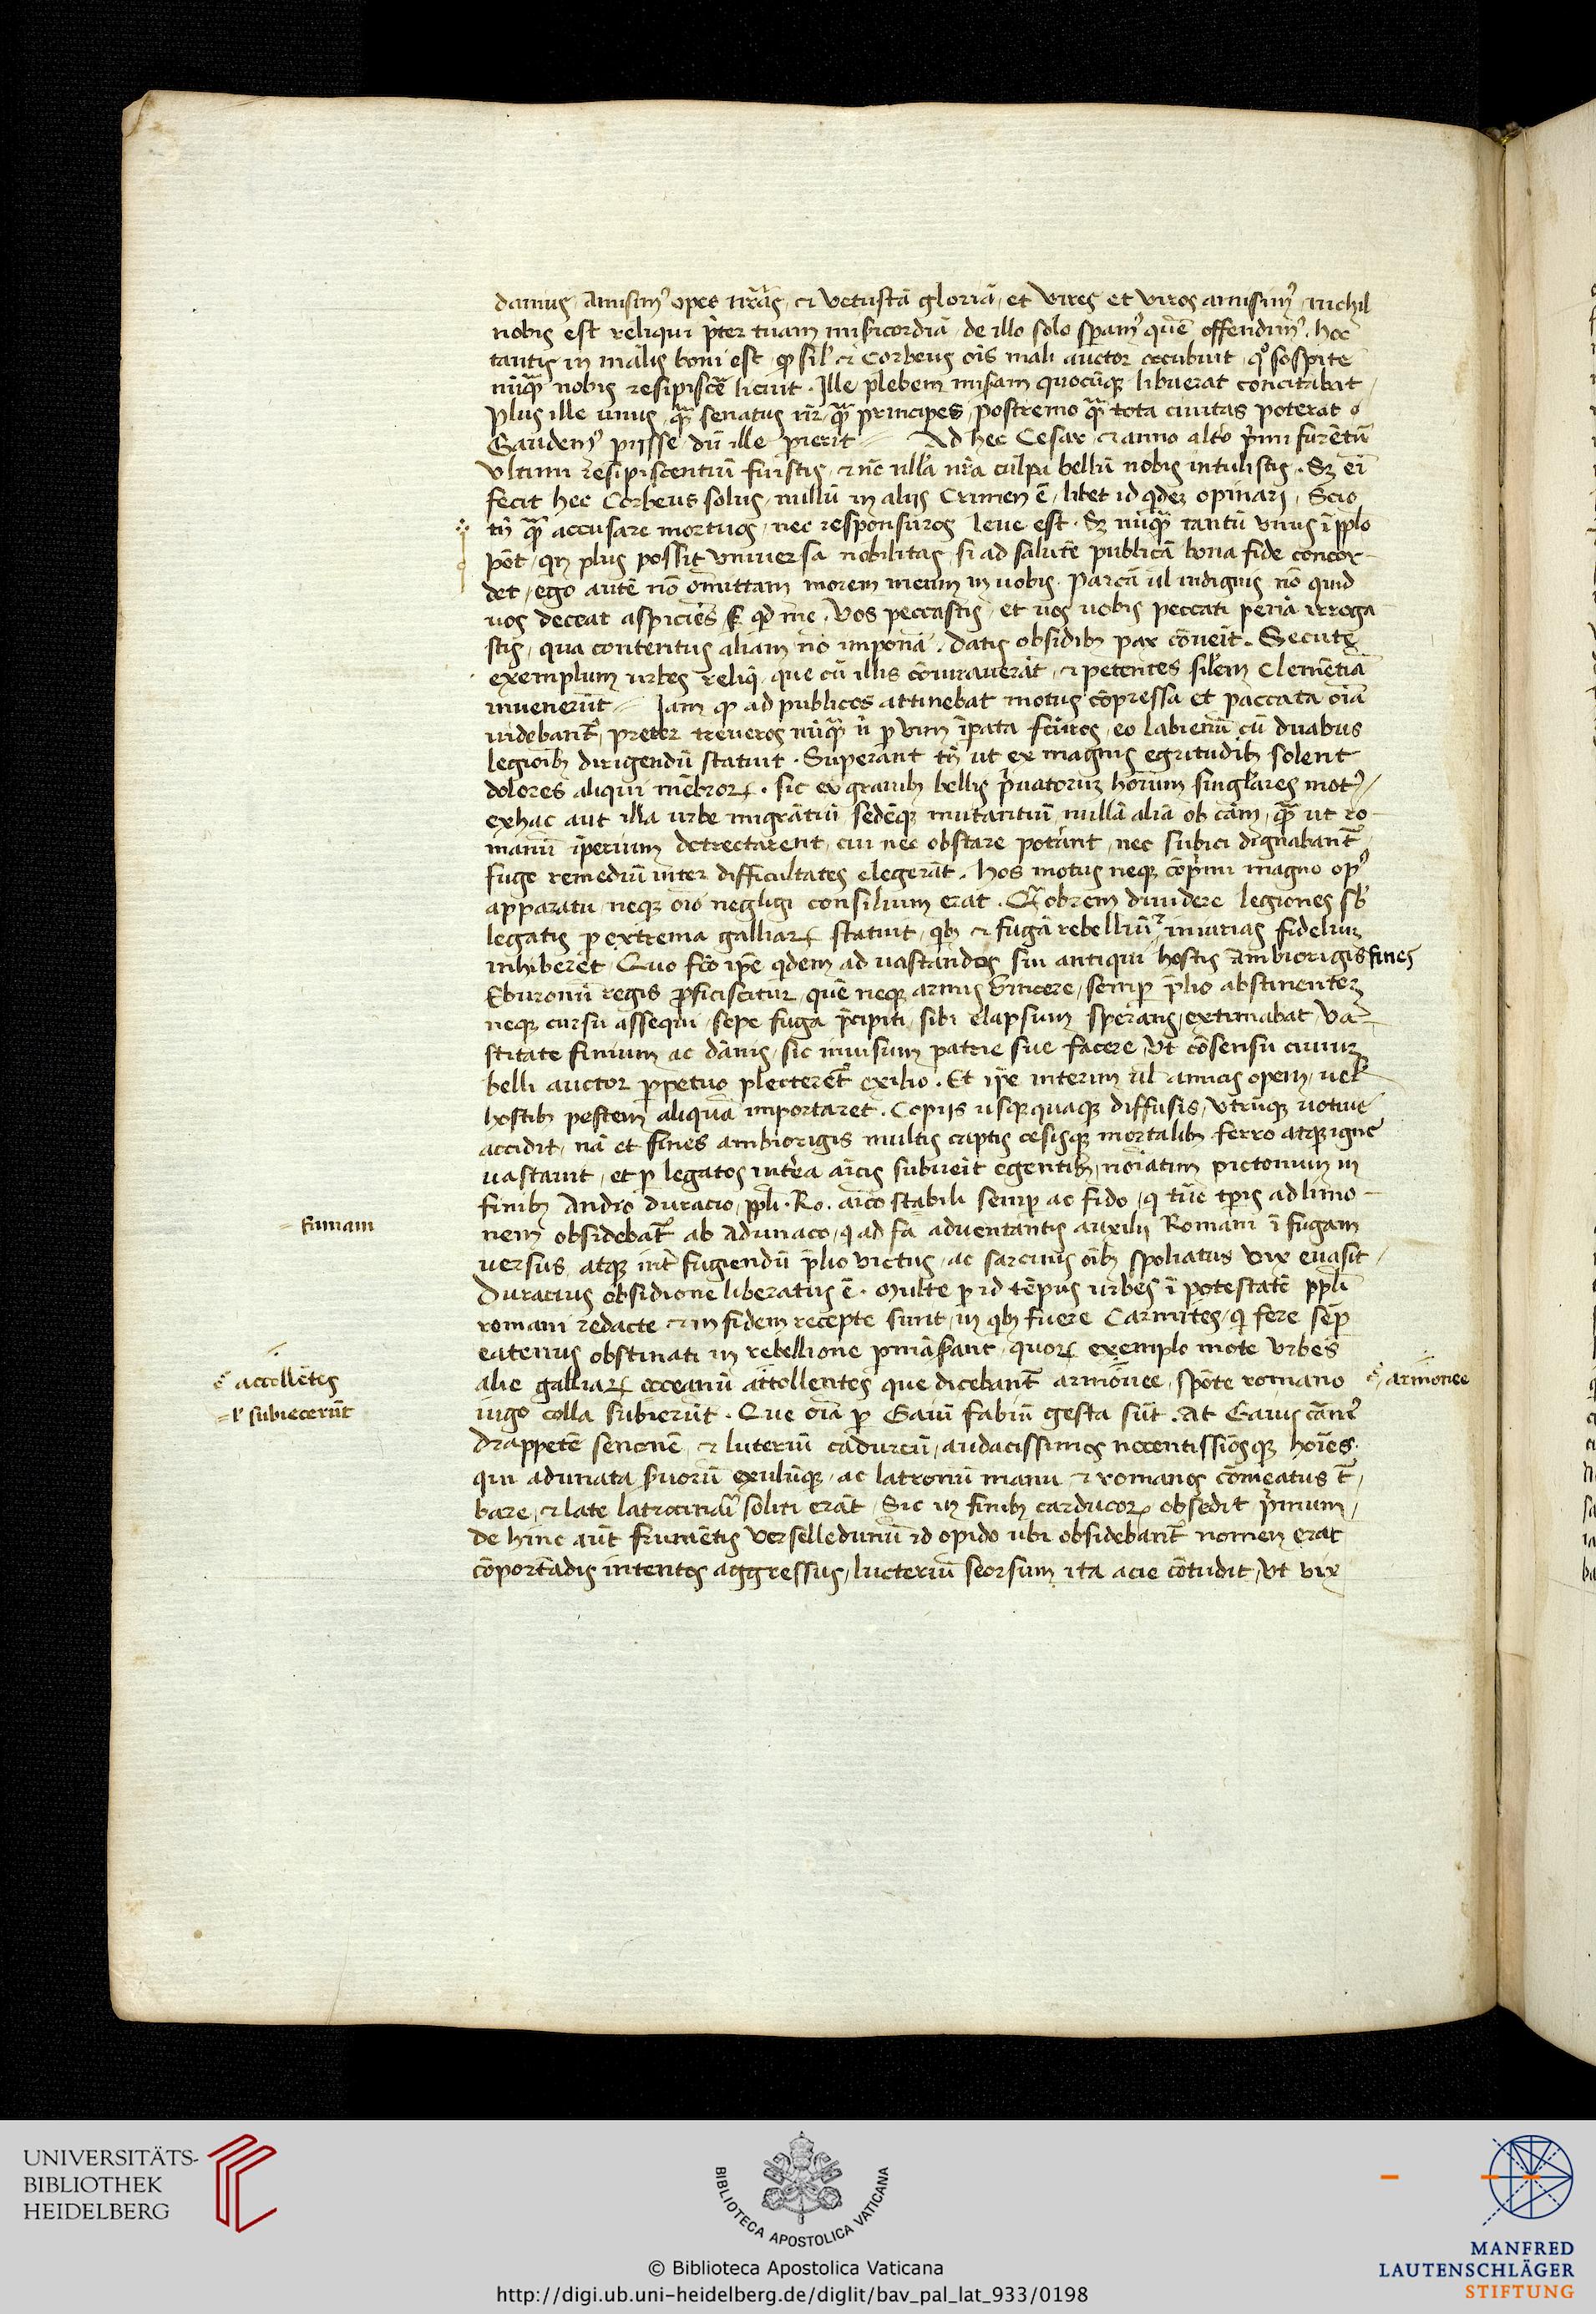 damus, Amisimꝰ opes nr̃as, et vetustā gloriā, et vires et viros amisimꝰ, nichil
nobis est reliqui p̃ter tuam mĩsicordiā, de illo solo speramꝰ quē offendimꝰ. hoc
tantis in malis boni est, qꝫ sil' et Corbeus oĩs mali auctor occubuit, qͦ sospite
nūqͣꝫ nobis resipiscẽ licuit. Ille plebem misãm quocūqꝫ libuerat concitabat,
Plus ille vnus qͣꝫ senatus nr̃, qͣꝫ principes, postremo qͣꝫ tota ciuitas poterat
Gaudemꝰ pijsse dū ille pierit. Ad hec Cesar, et anno alto p̃mi furētū
vltimi resipiscentiū fuistis, et nūc nulla nr̃a culpa bellū nobis intulistis. Sꝫ
fecit hec Corbeus solus, nullū in alijs Crimen ē, libet id qdeꝫ opinari, Scio
tñ qͣꝫ accusare mortuos, nec responsuros leue est. Sꝫ nūqͣꝫ tantū vnus ī pplo
põt, qn plus possit vniuersa nobilitas, si ad salutē publicā bona fide concor-
det, ego autē nō omittam morem meum in uobis. Parcā ul indignis nō quid
uos deceat aspiciēs sꝫ qd me. Vos peccastis, et uos uobis peccati penā irroga
stis, qua contentus aliam nō imponā. datis obsidibꝫ pax cōuenit. Secute
exemplum urbes reliq̃, que cū illis cōiurauerāt, et petentes sil'em Clemētiā
inuenerūt. Iam qꝫ ad publicos attinebat motus cōpressa et paccata oĩa
uidebantᷣ, preter treueros nūqͣꝫ ñ p vim īpata fcūros, eo labienū cū duabus
legioĩbꝫ dirigendū statuit. Superant tñ ut ex magnis egritudĩbꝫ solent
dolores aliqui mēbroꝝ. sic ex grauibꝫ bellis p̃uatoruꝫ hominum singl'ares motꝰ,
ex hac aut illa urbe migrātiū sedēqꝫ mutantiū, nullā aliā ob cām, qͣꝫ ut ro-
manū īperium detrectarent, cui nec obstare potãnt, nec subici dignabantᷣ,
fuge remediū inter difficultates elegerāt. hos motus neqꝫ cōpimi magno opꝰ
apparatu, neqꝫ oīo negligi consilium erat. Qͣobrem diuidere legiones sb'
legatis p extrema galliaꝝ statuit, qbꝫ et fugā rebelliū et iniurias fideliuꝫ
inhiberēt, Quo fc̃o ipē qdem ad uastandos sui antiqui hostis Ambiorigis fines
Eburonū regis proficiscitur, quē neqꝫ armis vincere, semp p̃lio abstinenteꝫ
neqꝫ cursu assequi, sepe fuga p̃cipiti, sibi elapsum sperans, extimabat va-
stitate finium ac dānis, sic inuisum patrie sue facere, vt cōsensu ciuiuꝫ
belli auctor ppetuo plecteretᷣ exilio. Et ipē interim ul amicis opem, uel
hostibꝫ pestem aliquā importaret. Copijs usqꝫquaqꝫ diffusis, vtrūqꝫ uotiue
accidit, nā et fines ambiorigis multis captis cesisqꝫ mortalibꝫ ferro atqꝫ igne
uastauit, et p legatos int̃ea amĩcis subueit egentibꝫ, noīatim pictonum in
finibꝫ Andio duracio, ppli. Ro. amĩco stabili semp ac fido, q tūc tp̃ris ad limo-
= fumam
nem obsidebatᷣ ab Adunaco, q ad fā aduentantis auxilij Romani ī fugam
uersus, atqꝫ int̃ fugiendū p̃lio victus, ac sarcinis oĩbꝫ spoliatus vix euasit,
Duracius obsidione liberatus ē. multe p id tēpus urbes ī potestatē ppl̃i
romani redacte et in fidem recepte sunt, in qbꝫ fuere Carnutes, q fere sēp
eatenus obstinati in rebellione pmāsānt, quoꝝ exemplo mote vrbes
accollētes
alie galliaꝝ occeanū attollentes que dicebantᷣ armonee, spōte romano
armonee
= l' subiecerūt
iugo colla subierūt. Que oĩa p Gaiū fabiū gesta sūt. At Gaius cāniꝰ
drappetē senonē, et luteriū cadurcū, audacissimos nocentissiōsqꝫ hoĩes
qui adunata seruorū exulūqꝫ, ac latronū manu et romanos cōmeatus
bare, et late latrocinari soliti erāt, Sic in finibꝫ carducoꝝ obsedit p̃mum,
de hinc aūt frumētis verselledunū id opido ubi obsidebantᷣ nomen erat
cōportādis intentos aggressus, lucteriū seorsum ita acie cōtudit, vt vix
UNIVERSITÄTS-
BIBLIOTHEK
HEIDELBERG
BIBLIOTECA APOSTOLICA VATICANA
© Biblioteca Apostolica Vaticana
http://digi.ub.uni-heidelberg.de/diglit/bav_pal_lat_933/0198
MANFRED
LAUTENSCHLÄGER
STIFTUNG